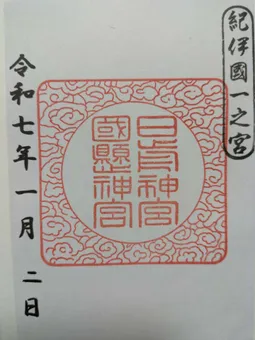 紀伊國一之宮
日前神宮
國懸神宮
令和七年一月二日